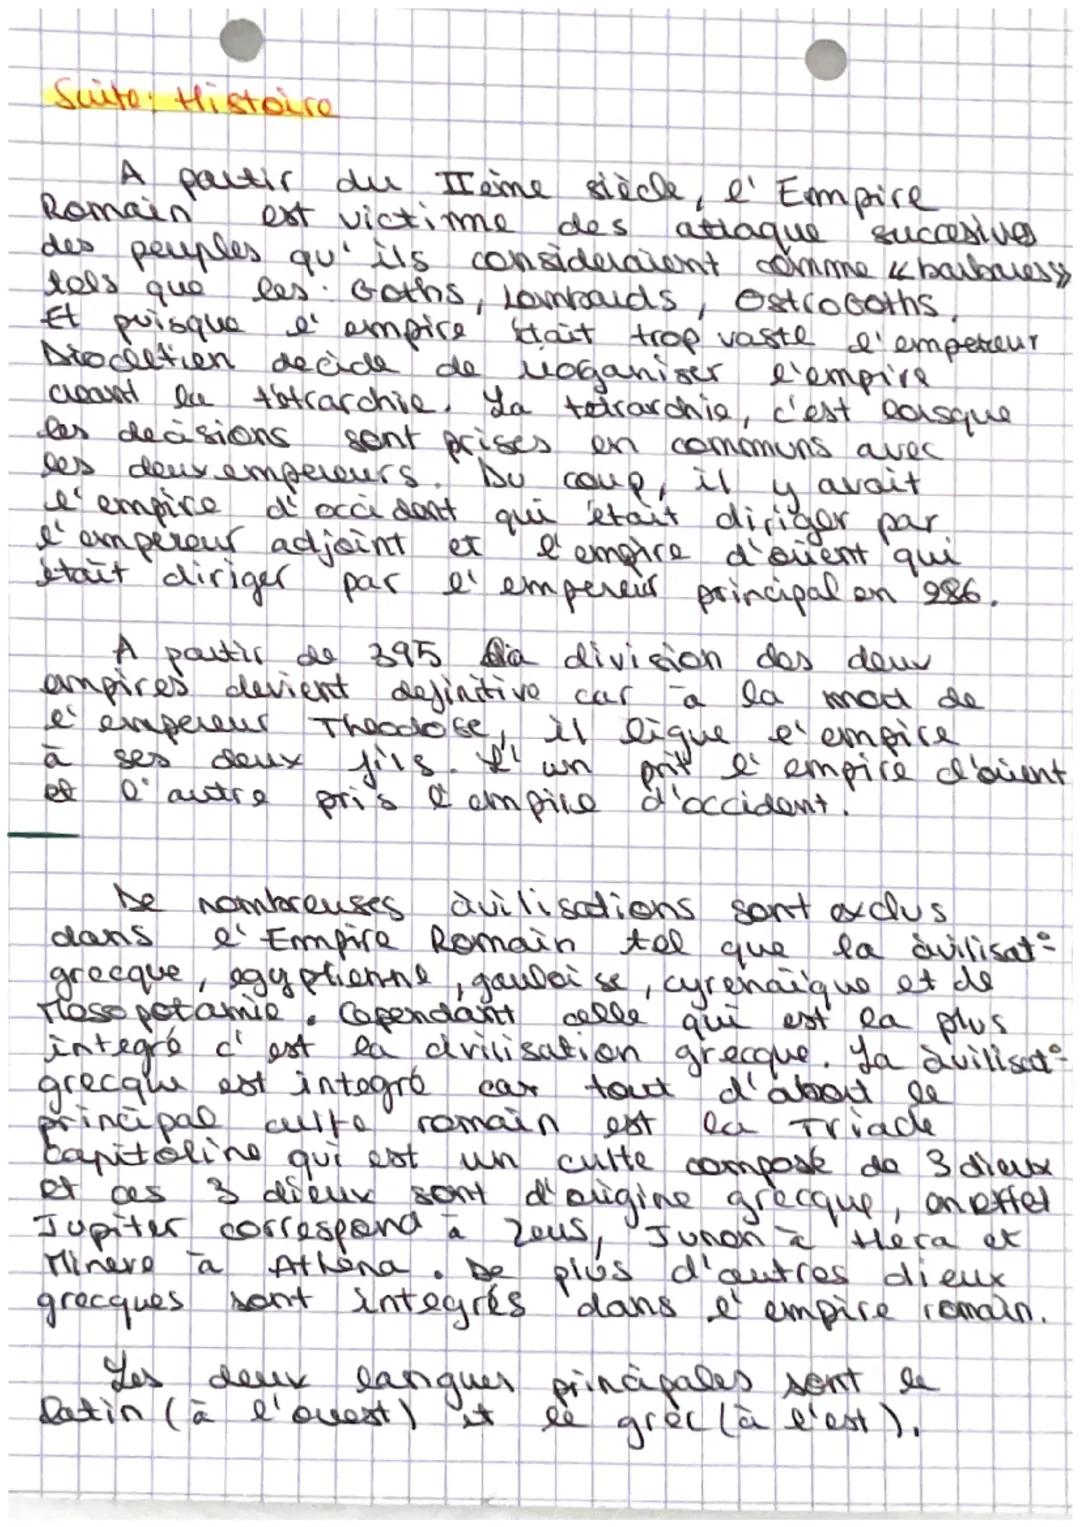 Suite : Histoire
A partir du IIème siècle, l'Empire
Romain est victime des attaque succesives
des peuples qu'ils considéraient comme « barbares »
tels que les : Goths, Lombards, OstroGoths.
Et puisque l'empire était trop vaste l'empereur
Diocletien decide de réoganiser l'empire
créant la tétrarchie. La tetrarchie, c'est lorsque
les decisions sont prises en communs avec
les deux empereurs. Du coup, il y avait
l'empire d'occident qui était diriger par
l'empereur adjoint et l'empire d'orient qui
était diriger par l'empereur principal en 286.
A partir de 395 la division des deux
empires devient definitive car à la mort de
l'empereur Theodose, il ligue l'empire
à ses deux fils. L'un prit l'empire d'orient
et l'autre pris l'empire d'occident.
De nombreuses civilisations sont exclus
dans l'Empire Romain tel que la civilisat°
grecque, egyptienne, gauloise, cyrénaïque et de
Mesopotamie. Cependant celle qui est la plus
integré c'est la civilisation grecque. La civilisat°
grecque est integré car tout d'abord le
principal culte romain est la Triade
Capitoline qui est un culte composé de 3 dieux
et ces 3 dieux sont d'origine grecque, en effet
Jupiter correspond à Zeus, Junon à Héra et
Minere à Athéna. De plus d'autres dieux
grecques sont integrés dans l'empire romain.
Les deux langues principales sont le
latin (à l'ouest) et le grec (à l'est).